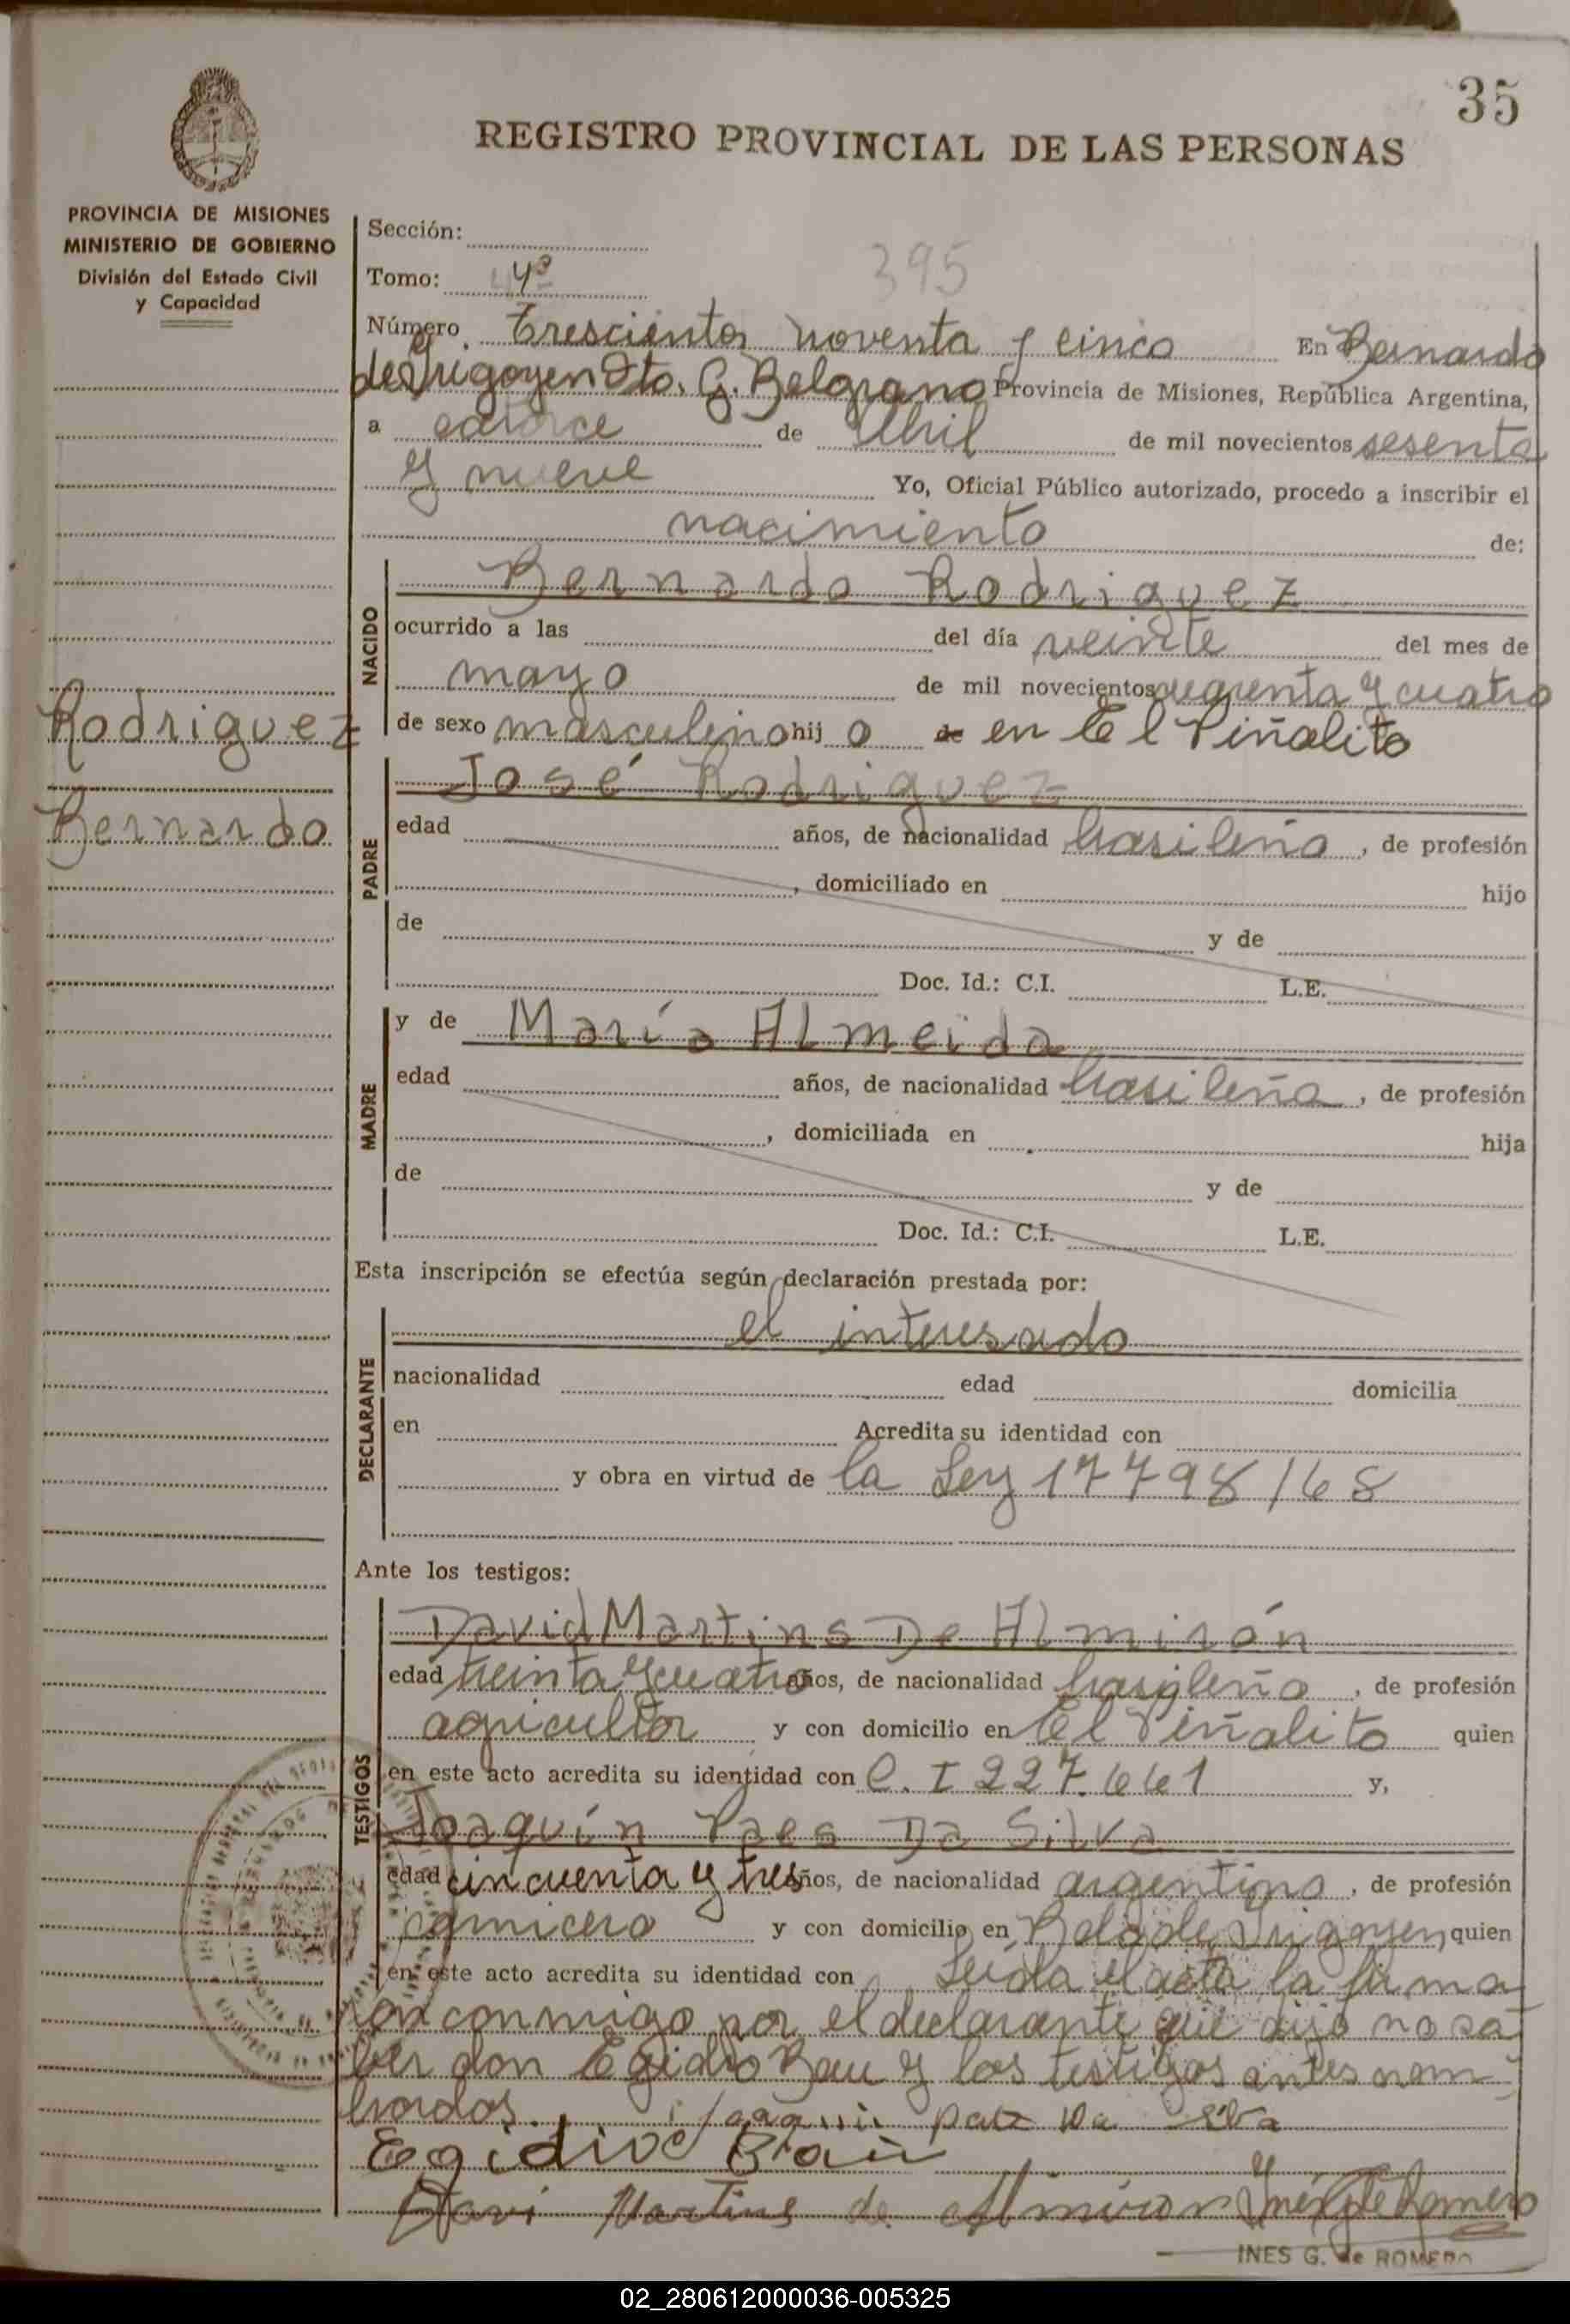 35
REGISTRO PROVINCIAL DE LAS PERSONAS
PROVINCIA DE MISIONES
MINISTERIO DE GOBIERNO
División del Estado Civil
y Capacidad
Sección:
Tomo: 4º
395
Número Trescientos noventa y cinco En Bernardo
de Yrigoyen Dto. G. Belgrano Provincia de Misiones, República Argentina,
a catorce de Abril de mil novecientos sesenta
y nueve Yo, Oficial Público autorizado, procedo a inscribir el
nacimiento de:
NACIDO
Bernardo Rodriguez
ocurrido a las del día veinte del mes de
mayo de mil novecientos cuarenta y cuatro
de sexo masculino hij o de en El Piñalito
Rodriguez
Bernardo
PADRE
José Rodriguez
edad años, de nacionalidad brasileña, de profesión
, domiciliado en hijo
de y de
Doc. Id.: C.I. L.E.
MADRE
y de María Almeida
edad años, de nacionalidad brasileña, de profesión
, domiciliada en hija
de y de
Doc. Id.: C.I. L.E.
Esta inscripción se efectúa según declaración prestada por:
DECLARANTE
el interesado
nacionalidad edad domicilia
en Acredita su identidad con
y obra en virtud de la Ley 17798/68
Ante los testigos:
TESTIGOS
David Martins De Almirón
edad treinta y cuatro años, de nacionalidad brasileña, de profesión
agricultor y con domicilio en El Piñalito quien
en este acto acredita su identidad con C. I 227.661 y,
Joaquín Paes Da Silva
edad cincuenta y tres años, de nacionalidad argentino, de profesión
carnicero y con domicilio en Bdo de Yrigoyen, quien
en este acto acredita su identidad con Leída el acta la firma
ron conmigo por el declarante que dijo no sa
ber don Egidio Bau y los testigos antes nom
brados.
Joaquin paes Da silva
Egidio
Davi Martins de Almiron Ynés G de Romero
INES G. de ROMERO
02_280612000036-005325